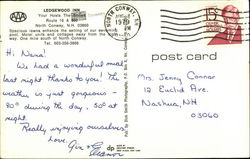 LEDGEWOOD INN
Your Hosts The
Route 16 &
North Conway, N.H. 03860
Spacious lawns enhance the setting of our swimming
pool. Motel units and cottages away from the high-
way. One mile south of North Conway
Tel. 603-356-
Hi, Nana!
We had a wonderful meal
last night thanks to you! The
weather is just gorgeous -
90° during the day, 50° at
night.
Really enjoying ourselves
Love,
Jim &
Eleanor
NORTH CONWAY, N.H.
15¢
post card
Mrs. Jenny Connor
12 Euclid Ave.
Nashua, NH
03060
dp